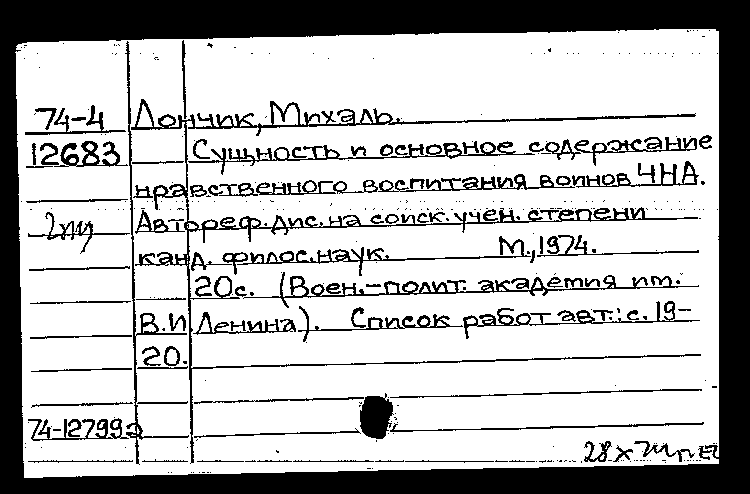 74-4 Лончик, Михаль.
12683 Сущность и основное содержание
нравственного воспитания воинов ЧНА.
Автореф. дис. на соиск. учен. степени
канд. филос. наук. М., 1974.
20с. (Воен.-полит. академия им.
В.И Ленина). Список работ авт.: с. 19-
20.
74-12799
28 X